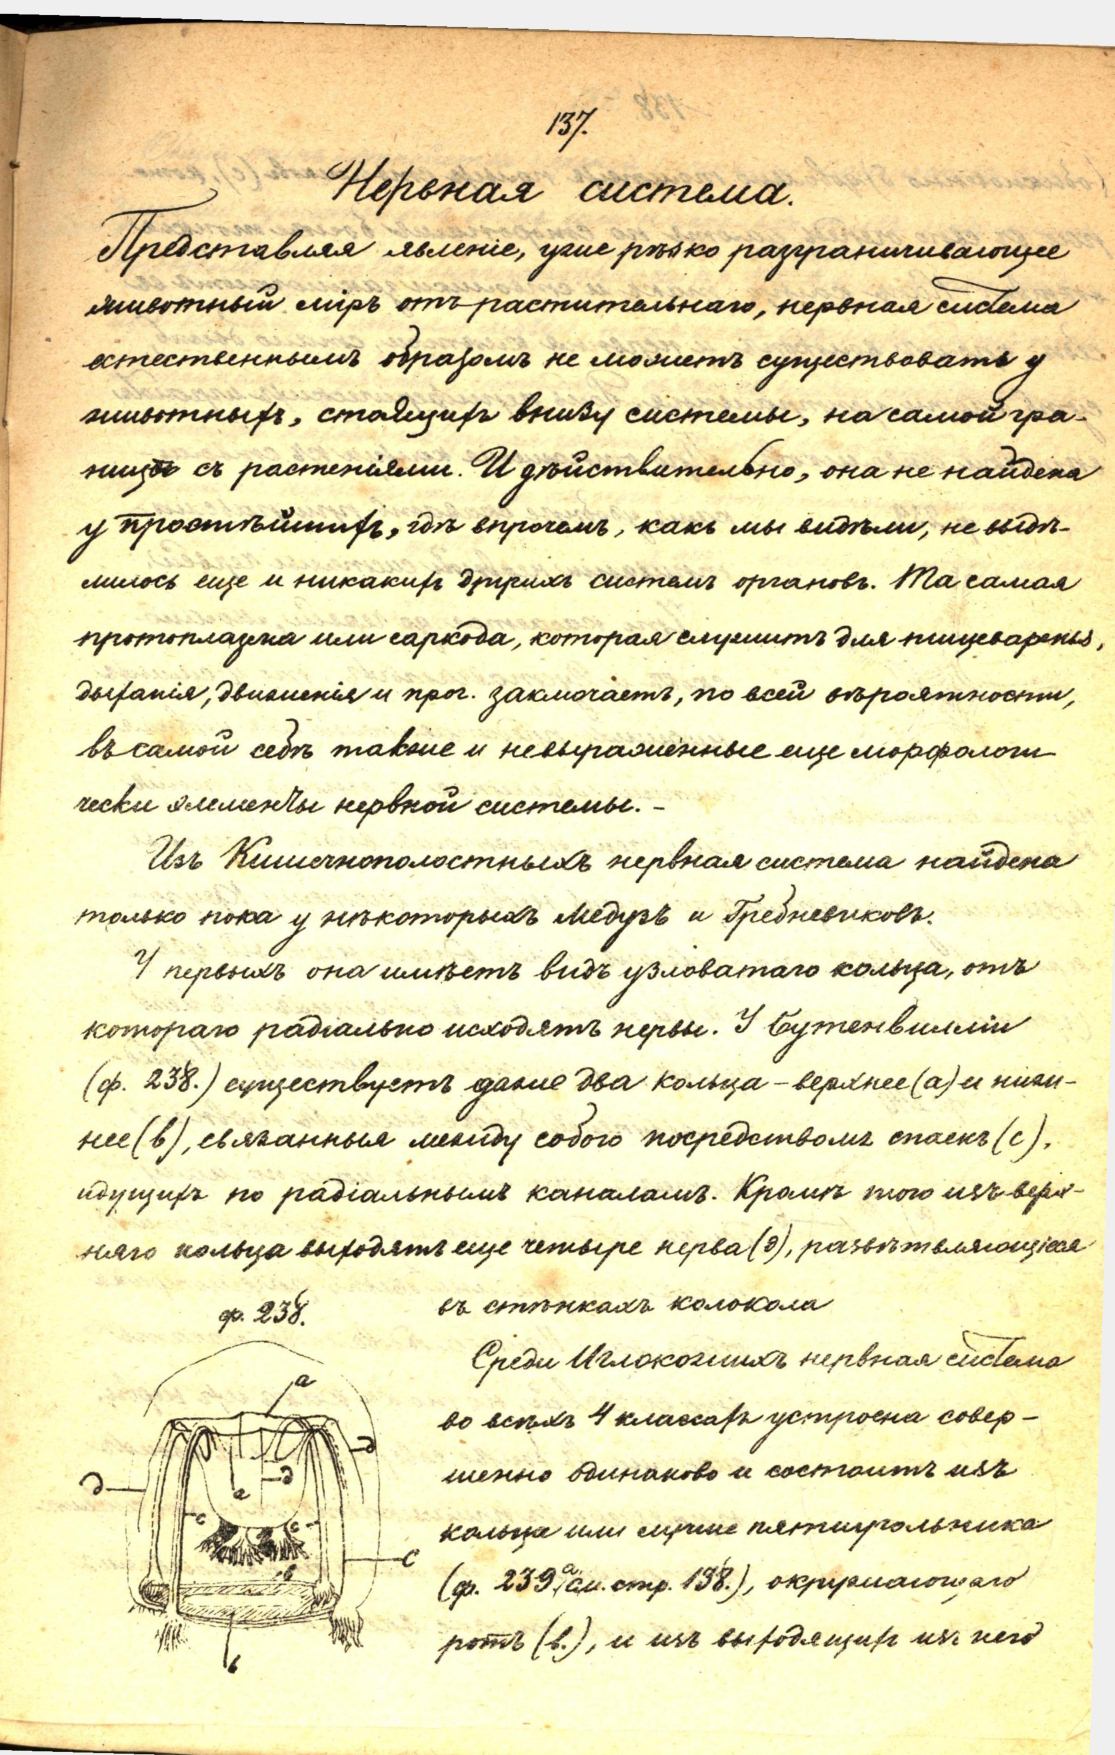 137.
Нервная система.
Представляя явленіе, уже рѣзко разграничивающее
животный міръ отъ растительнаго, нервная система
естественнымъ образомъ не можетъ существовать у
животныхъ, стоящихъ внизу системы, на самой гра-
ницѣ съ растеніями. И дѣйствительно, она не найдена
у простѣйшихъ, гдѣ впрочемъ, какъ мы видѣли, не выдѣ-
лилось еще и никакихъ другихъ системъ органовъ. Та самая
протоплазма или саркода, которая служитъ для пищеваренья,
дыханія, движенія и проч. заключаетъ, по всей вѣроятности,
въ самой себѣ также и невыраженные еще морфологи-
чески элементы нервной системы. –
Изъ Кишечнополостныхъ нервная система найдена
только пока у нѣкоторыхъ Медузъ и Гребневиковъ.
У первыхъ она имѣетъ видъ узловатаго кольца, отъ
котораго радіально исходятъ нервы. У Бугенвилліи
(ф. 238.) существуетъ даже два кольца – верхнее (а) и ниж-
нее (в), связанныя между собою посредствомъ спаекъ (с),
идущихъ по радіальнымъ каналамъ. Кромѣ того изъ верх-
няго кольца выходятъ еще четыре нерва (д), развѣтвляющіеся
въ стѣнкахъ колокола
ф. 238.
а
д
д
д
а
с
с
с
в
в
Среди Иглокожихъ нервная система
во всѣхъ 4 классахъ устроена совер-
шенно одинаково и состоитъ изъ
кольца или лучше пятиугольника
(ф. 239 а см. стр. 138.), окружающаго
ротъ (в.), и изъ выходящихъ изъ него